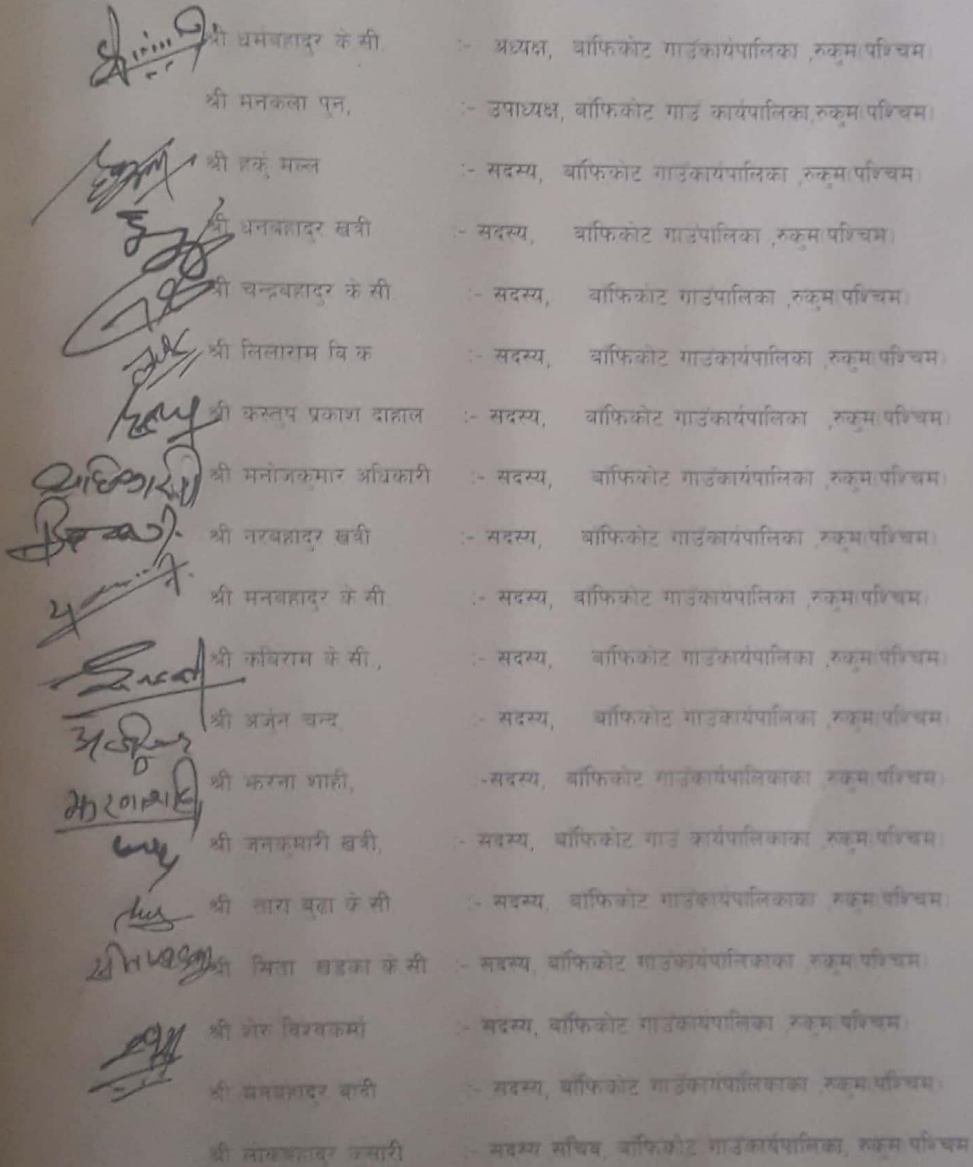 श्री धमबहादुर के सी :- अध्यक्ष, बाँफिकोट गाउंकार्यपालिका ,रुकुम(पश्चिम)
श्री मनकला पुन, :- उपाध्यक्ष, बाँफिकोट गाउं कार्यपालिका,रुकुम(पश्चिम)
श्री हर्कु मल्ल :- सदस्य, बाँफिकोट गाउंकार्यपालिका ,रुकुम(पश्चिम)
श्री धनबहादुर खत्री :- सदस्य, बाँफिकोट गाउंपालिका ,रुकुम(पश्चिम)
श्री चन्द्रबहादुर के सी :- सदस्य, बाँफिकोट गाउंपालिका ,रुकुम(पश्चिम)
श्री लिलाराम वि क :- सदस्य, बाँफिकोट गाउंकार्यपालिका ,रुकुम(पश्चिम)
श्री कस्तुप प्रकाश दाहाल :- सदस्य, बाँफिकोट गाउंकार्यपालिका ,रुकुम(पश्चिम)
अधिकारी श्री मनोजकुमार अधिकारी :- सदस्य, बाँफिकोट गाउंकार्यपालिका ,रुकुम(पश्चिम)
श्री नरबहादुर खत्री :- सदस्य, बाँफिकोट गाउंकार्यपालिका ,रुकुम(पश्चिम)
श्री मनबहादुर के सी :- सदस्य, बाँफिकोट गाउंकार्यपालिका ,रुकुम(पश्चिम)
श्री कविराम के सी, :- सदस्य, बाँफिकोट गाउंकार्यपालिका ,रुकुम(पश्चिम)
श्री अर्जुन चन्द :- सदस्य, बाँफिकोट गाउंकार्यपालिका ,रुकुम(पश्चिम)
झरना शाही श्री झरना शाही, :-सदस्य, बाँफिकोट गाउंकार्यपालिकाका ,रुकुम(पश्चिम)
श्री जनकुमारी खत्री, :- सदस्य, बाँफिकोट गाउं कार्यपालिकाका ,रुकुम(पश्चिम)
श्री तारा बुढा के सी :- सदस्य, बाँफिकोट गाउंकार्यपालिकाका ,रुकुम(पश्चिम)
श्री सिता खडका के सी :- सदस्य, बाँफिकोट गाउंकार्यपालिकाका ,रुकुम(पश्चिम)
श्री शेरु विश्वकर्मा :- सदस्य, बाँफिकोट गाउंकार्यपालिका ,रुकुम(पश्चिम)
श्री बादी :- सदस्य, बाँफिकोट गाउंकार्यपालिकाका ,रुकुम(पश्चिम)
श्री लोकबहादुर :- सदस्य सचिव, बाँफिकोट गाउंकार्यपालिका, रुकुम पश्चिम